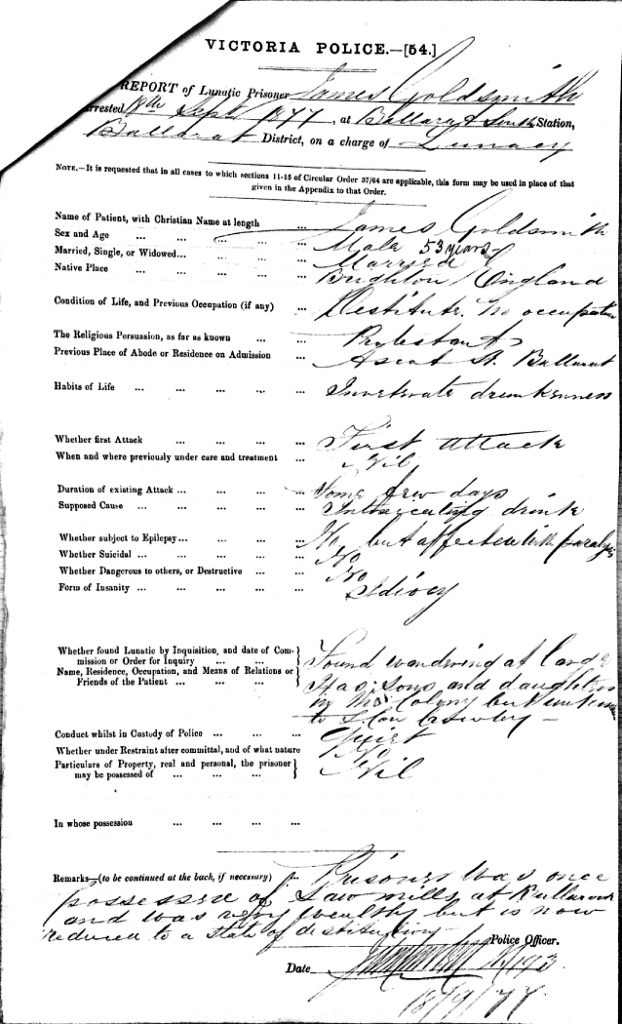 VICTORIA POLICE.—[54.]
REPORT of Lunatic Prisoner James Goldsmith
arrested 18th Sept 1877, at Ballarat South Station,
Ballarat District, on a charge of Lunacy
NOTE.—It is requested that in all cases to which sections 11-15 of Circular Order 37/64 are applicable, this form may be used in place of that
given in the Appendix to that Order.
Name of Patient, with Christian Name at length ... James Goldsmith
Sex and Age ... ... ... ... Male 53 years
Married, Single, or Widowed... ... ... ... Married
Native Place ... ... ... ... Brighton England
Condition of Life, and Previous Occupation (if any) ... Destitute. No occupation
The Religious Persuasion, as far as known ... ... Protestant
Previous Place of Abode or Residence on Admission ... Ascot St. Ballarat
Habits of Life ... ... ... ... ... Inveterate drunkenness
Whether first Attack ... ... ... ... First attack
When and where previously under care and treatment ... Nil
Duration of existing Attack ... ... ... ... Some few days
Supposed Cause ... ... ... ... Intoxicating drink
Whether subject to Epilepsy... ... ... ... No but affected with paralysis
Whether Suicidal ... ... ... ... ... No
Whether Dangerous to others, or Destructive ... ... No
Form of Insanity ... ... ... ... ... Idiocy
Whether found Lunatic by Inquisition, and date of Com-
mission or Order for Inquiry ... ... Found wandering at large
Name, Residence, Occupation, and Means of Relations or
Friends of the Patient ... ... ... ... Has sons and daughters
in this Colony but unknown
to
Conduct whilst in Custody of Police ... ... ... Quiet
Whether under Restraint after committal, and of what nature No
Particulars of Property, real and personal, the prisoner
may be possessed of ... ... ... Nil
In whose possession ... ... ... ...
Remarks—(to be continued at the back, if necessary) Prisoner was once
possessed of Saw mills at
and was very wealthy but is now
reduced to a state of destitution
Police Officer.
Date
18/9/77